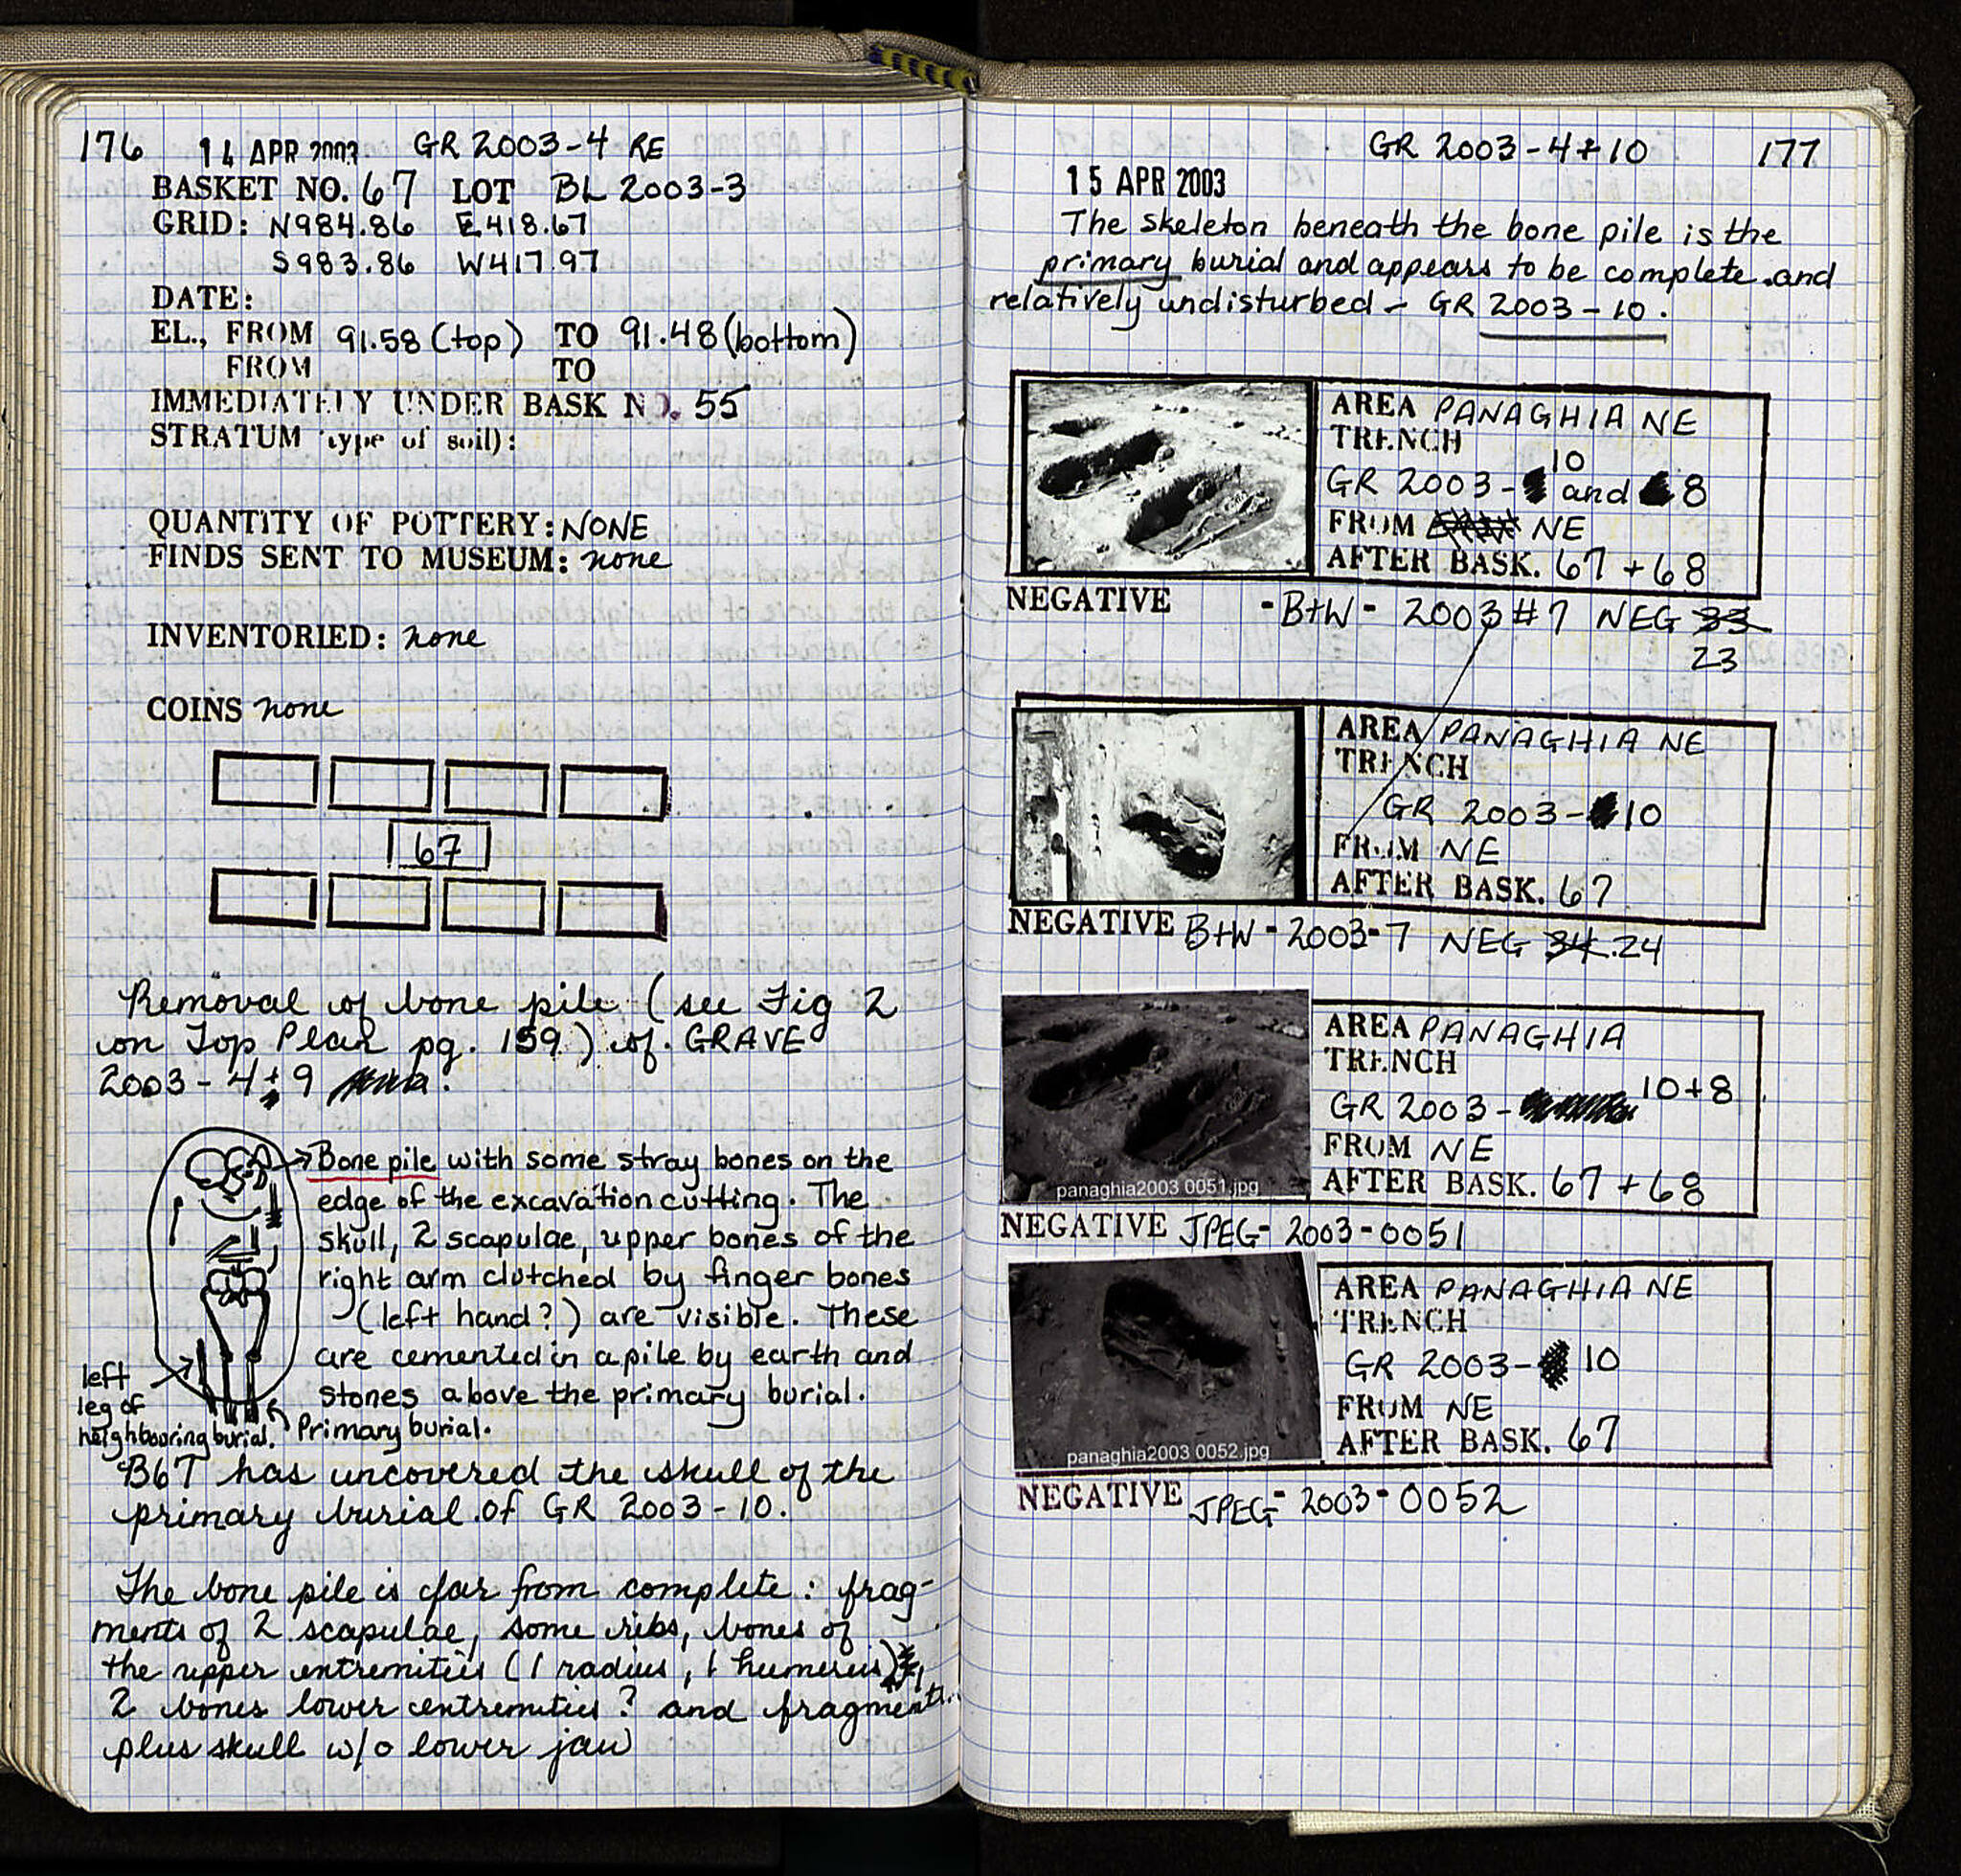 176 14 APR 2003 GR 2003-4 RE
BASKET NO. 67 LOT BL 2003-3
GRID: N984.86 E418.67
S983.86 W417.97
DATE:
EL., FROM 91.58 (top) TO 91.48 (bottom)
FROM TO
IMMEDIATELY UNDER BASK NO. 55
STRATUM (type of soil):
QUANTITY OF POTTERY: NONE
FINDS SENT TO MUSEUM: none
INVENTORIED: none
COINS none
67
Removal of bone pile (see Fig 2
on Top Plan pg. 159) of GRAVE
2003-4+9
Bone pile with some stray bones on the
edge of the excavation cutting. The
skull, 2 scapulae, upper bones of the
right arm clutched by finger bones
(left hand?) are visible. These
are cemented in a pile by earth and
stones above the primary burial.
left
leg of
neighbouring burial. Primary burial.
B67 has uncovered the skull of the
primary burial of GR 2003-10.
The bone pile is far from complete: frag-
ments of 2 scapulae, some ribs, bones of
the upper extremities (1 radius, 1 humerus)
2 bones lower extremities? and fragments
plus skull w/o lower jaw
GR 2003-4+10 177
15 APR 2003
The skeleton beneath the bone pile is the
primary burial and appears to be complete and
relatively undisturbed - GR 2003-10.
AREA PANAGHIA NE
TRENCH
GR 2003-10 and 8
FROM NE
AFTER BASK. 67+68
NEGATIVE -B+W- 2003#7 NEG 33
23
AREA PANAGHIA NE
TRENCH
GR 2003-10
FROM NE
AFTER BASK. 67
NEGATIVE B+W-2003-7 NEG 34.24
panaghia2003 0051.jpg
AREA PANAGHIA
TRENCH
GR 2003- 10+8
FROM NE
AFTER BASK. 67+68
NEGATIVE JPEG-2003-0051
panaghia2003 0052.jpg
AREA PANAGHIA NE
TRENCH
GR 2003-10
FROM NE
AFTER BASK. 67
NEGATIVE JPEG-2003-0052